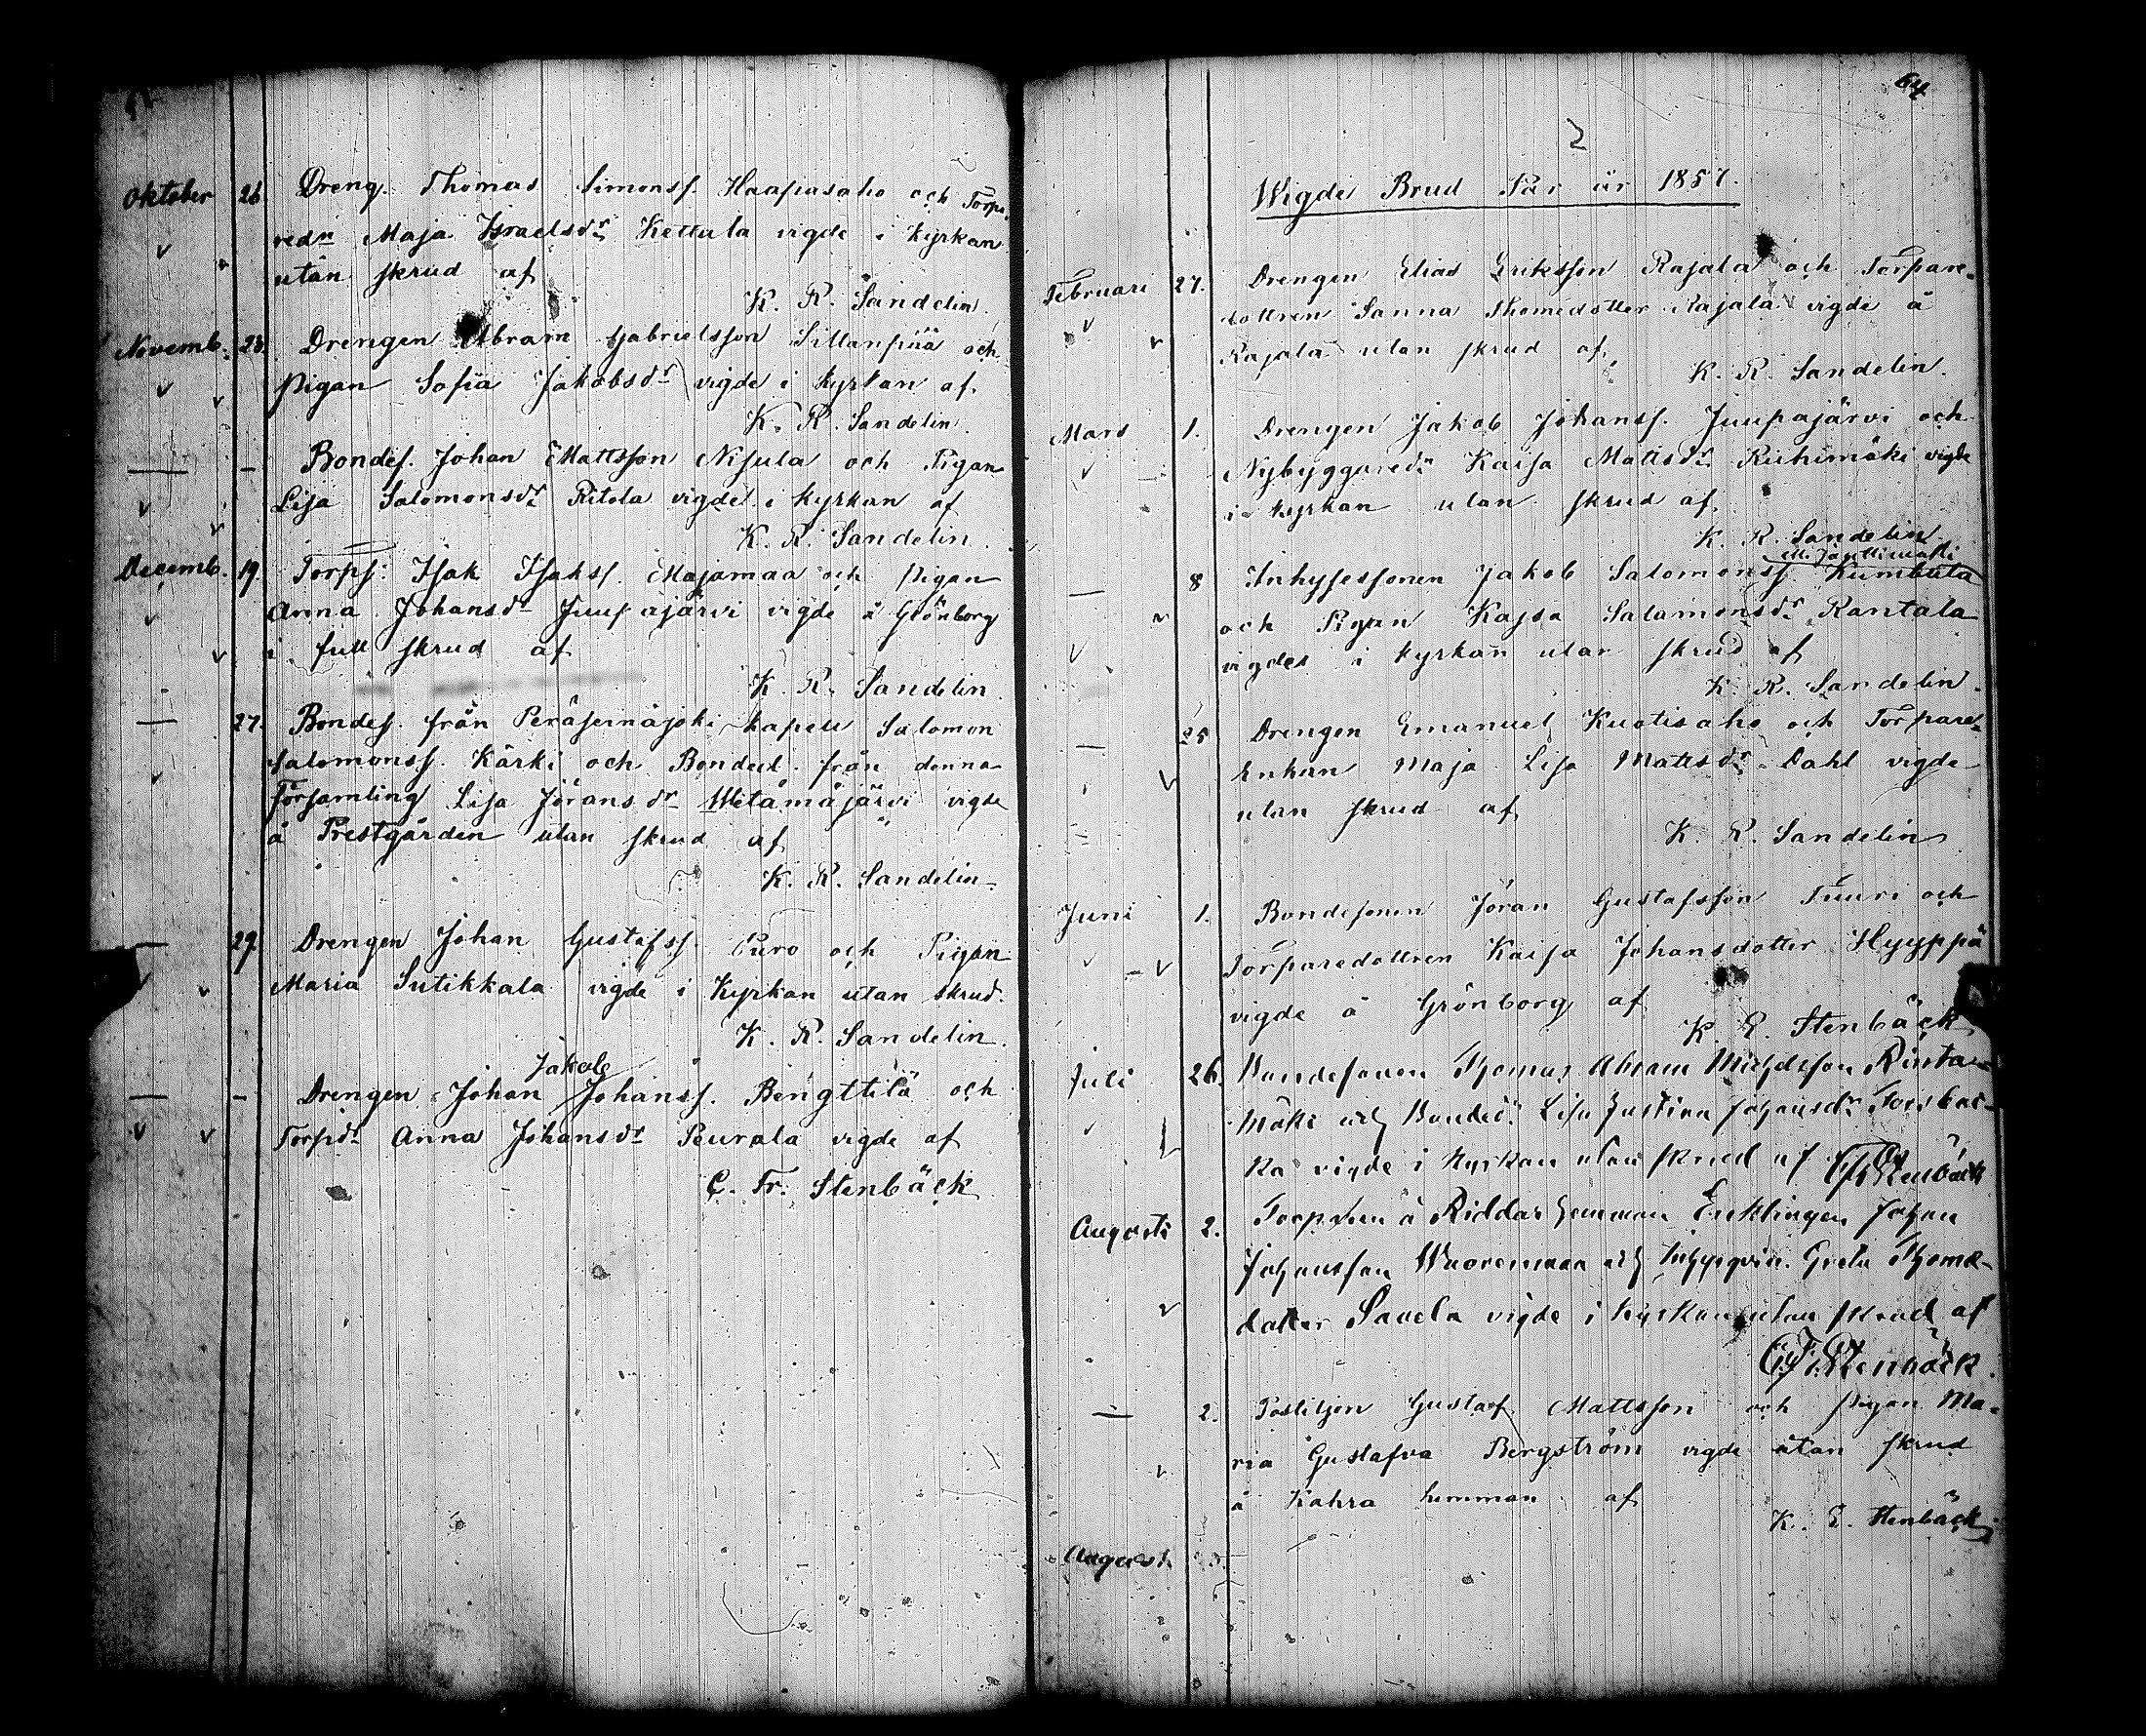 Oktober 26 Dreng. Thomas Simonss. Haapasaho och Torpa-
redn Maja Israelsdr Kettula vigde i Kyrkan
utan skrud af
K. R. Sandelin.
Novemb. 23. Drengen Abram Gabrielsson Sillanpää och
Pigan Sofia Jakobsdr vigde i kyrkan af
K. R. Sandelin.
— - Bondes. Johan Mattsson Nisula och Pigan
Lisa Salomonsdr Ritola vigde i kyrkan af
K. R. Sandelin.
Decemb. 19. Torps. Isak Isakss. Majamaa och pigan
Anna Johansdr Juupajärvi vigde å Grönborg
i full skrud af
K. R. Sandelin.
— 27. Bondes. från Peräseinäjoki kapell Salomon
Salomonss. Kärki och Bonded. från denna
Församling Lisa Jöransdr Wetämäjärvi vigde
å Prestgården utan skrud af
K. R. Sandelin.
— 29. Drengen Johan Gustafss. Puro och Pigan
Maria Sutikkala vigde i Kyrkan utan skrud.
K. R. Sandelin.
Jakob
— - Drengen Johan Johanss. Bengttilä och
Torpdr Anna Johansdr Peurala vigde af
C. Fr. Stenbäck
64
2
Wigde Brud Par år 1857.
Februari 27. Drengen Elias Eriksson Rajala och Torpare-
dottren Sanna Thomedotter Rajala vigde å
Rajala utan skrud af
K. R. Sandelin.
Mars 1. Drengen Jakob Johanss. Juupajärvi och
Nybyggaredr Kaisa Mattsdr Riihimäki vigde
i kyrkan utan skrud af
K. R. Sandelin.
— 8 Inhysessonen Jakob Salomonss. Kumbula
och Pigan Kajsa Salomonsdr Rantala
vigdes i kyrkan utan skrud af
K. R. Sandelin.
— 25 Drengen Emanuel Kuotisaho och Torpare-
Enkan Maja Lisa Mattsdr Dahl vigde
utan skrud af
K. R. Sandelin
Juni 1. Bondesonen Jöran Gustafsson Tuuri och
Torparedottren Kaisa Johansdotter Hyyppä
vigde å Grönborg af
K. E. Stenbäck
Juli 26. Bondesonen Thomas Abram Michelsson Rinta-
mäki och Bondedr Lisa Justina Johansdr Forsbac-
ka vigde i kyrkan utan skrud af C F Stenbäck
Augusti 2. Torpsven å Riddar hemman Enklingen Johan
Johansson Wuorenmaa och Inhysqvin. Greta Thomæ-
dotter Savela vigde i kyrkan utan skrud af
C. F. Stenbäck.
— 2. Postiljon Gustaf Mattsson och pigan Ma-
ria Gustafva Bergström vigde utan skrud
å Kahra hemman af
K. E. Stenbäck
August.